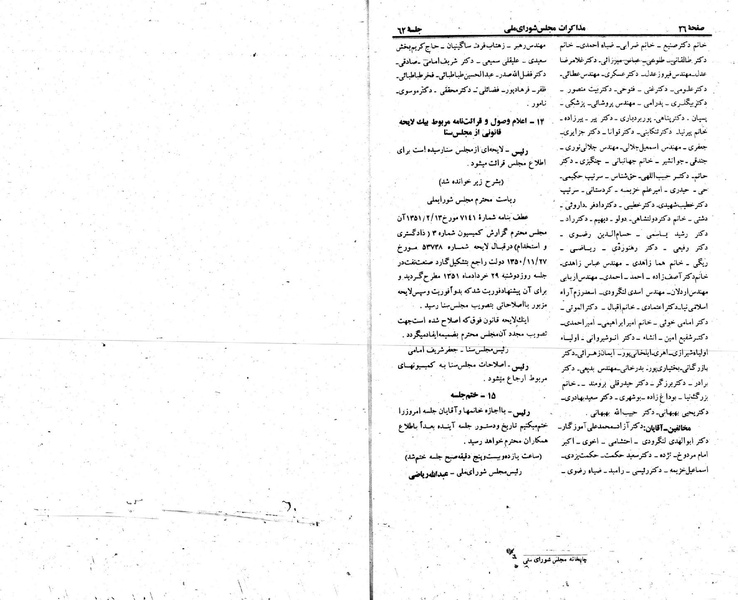 صفحهٔ ۲۶
مذاکرات مجلس شورای ملی
جلسهٔ ۶۲
خانم دکتر صنیع - خانم ضرابی - ضیاء احمدی - خانم
دکتر طالقانی - طلوعی - عباس میرزائی - دکتر غلامرضا
عدل - مهندس فیروز عدل - دکتر عسکری - مهندس عطائی -
دکتر علومی - دکتر غنی - فتوحی - دکتر بیت منصور -
دکتر بیگلری - پدرامی - مهندس بروشانی - پزشکی -
پسیان - دکتر پناهی - پوربردباری - دکتر پیر - پیرزاده -
خانم پیرنیا - دکتر تنکابنی - دکتر توانا - دکتر جزایری -
جعفری - مهندس اسمعیل جلالی - مهندس جلالی نوری -
جندقی - جوانشیر - خانم جهانبانی - چنگیزی - دکتر
حاتم - دکتر حبیب اللهی - حق شناس - سرتیپ حکیمی -
حی - حیدری - امیر علم خزیمه - کردستانی - سرتیپ
دکتر خطیب شهیدی - دکتر خطیبی - دکتر دادفر - داروئی -
دشتی - خانم دکتر دولتشاهی - دولو - دیهیم - دکتر راد -
دکتر رشید یاسمی - حسام الدین رضوی -
دکتر رفیعی - دکتر رهنوردی - ریاضی -
ریگی - خانم هما زاهدی - مهندس عباس زاهدی -
خانم دکتر آصف زاده - احمد - احمدی - مهندس اربابی
مهندس اردلان - مهندس اسدی لنگرودی - اسعد رزم آراه
اسلامی نیا - دکتر اعتمادی - خانم اقبال - دکتر الموتی -
دکتر امامی خوئی - خانم امیر ابراهیمی - امیر احمدی -
دکتر شفیع امین - انشاء - دکتر انوشیروانی - اولیاء
اولیاء شیرازی - اهری - ایلخانی پور - ایمان زهرائی - دکتر
بازرگانی - بختیاری پور - بدرخانی - مهندس بدیعی - دکتر
برادر - دکتر برزگر - دکتر حیدرقلی برومند - خانم
بزرگ نیا - بوداغ زاده - بوشهری - دکتر سعید بهادری -
دکتر یحیی بهبهانی - دکتر حبیب الله بهبهانی.
مخالفین - آقایان: دکتر آزاد - محمدعلی آموزگار -
دکتر ابوالهدی لنگرودی - احتشامی - اخوی - اکبر
امام مردوخ - نژده - دکتر سعید حکمت - حکمت یزدی -
اسماعیل خزیمه - دکتر رئیسی - رامبد - ضیاء رضوی -
مهندس رهبر - زهتاب فرد - ساگینیان - حاج کریم بخش
سعیدی - علیقلی سمیعی - دکتر شریف امامی - صادقی -
دکتر فضل الله صدر - عبدالحسین طباطبائی - فخر طباطبائی -
ظفر - فرهادپور - فضائلی - دکتر محققی - دکتر موسوی -
نامور.
۱۴ - اعلام وصول و قرائت نامه مربوط بیک لایحه
قانونی از مجلس سنا
رئیس - لایحه‌ای از مجلس سنا رسیده است برای
اطلاع مجلس قرائت میشود.
(بشرح زیر خوانده شد)
ریاست محترم مجلس شورایملی
عطف بنامه شمارهٔ ۷۱۴۱ مورخ ۱۳۵۱/۲/۱۳ آن
مجلس محترم گزارش کمیسیون شماره ۳ (دادگستری
و استخدام) درقبال لایحه شماره ۵۳۷۳۸ مورخ
۱۳۵۰/۱۱/۲۷ دولت راجع بتشکیل گارد صنعت نفت در
جلسه روز دوشنبه ۲۹ خردادماه ۱۳۵۱ مطرح گردید و
برای آن پیشنهاد فوریت شد که بدوأ فوریت و سپس لایحه
مزبور با اصلاحاتی بتصویب مجلس سنا رسید.
اینک لایحه قانون فوق که اصلاح شده است جهت
تصویب مجدد آن مجلس محترم بضمیمه ایفاد میگردد.
رئیس مجلس سنا - جعفر شریف امامی
رئیس - اصلاحات مجلس سنا به کمیسیونهای
مربوط ارجاع میشود.
۱۵ - ختم جلسه
رئیس - با اجازه خانمها و آقایان جلسه امروز را
ختم میکنیم تاریخ و دستور جلسه آینده بعداً باطلاع
همکاران محترم خواهد رسید.
(ساعت یازده و بیست و پنج دقیقه صبح جلسه ختم شد)
رئیس مجلس شورای ملی - عبدالله ریاضی
چاپخانه مجلس شورای ملی